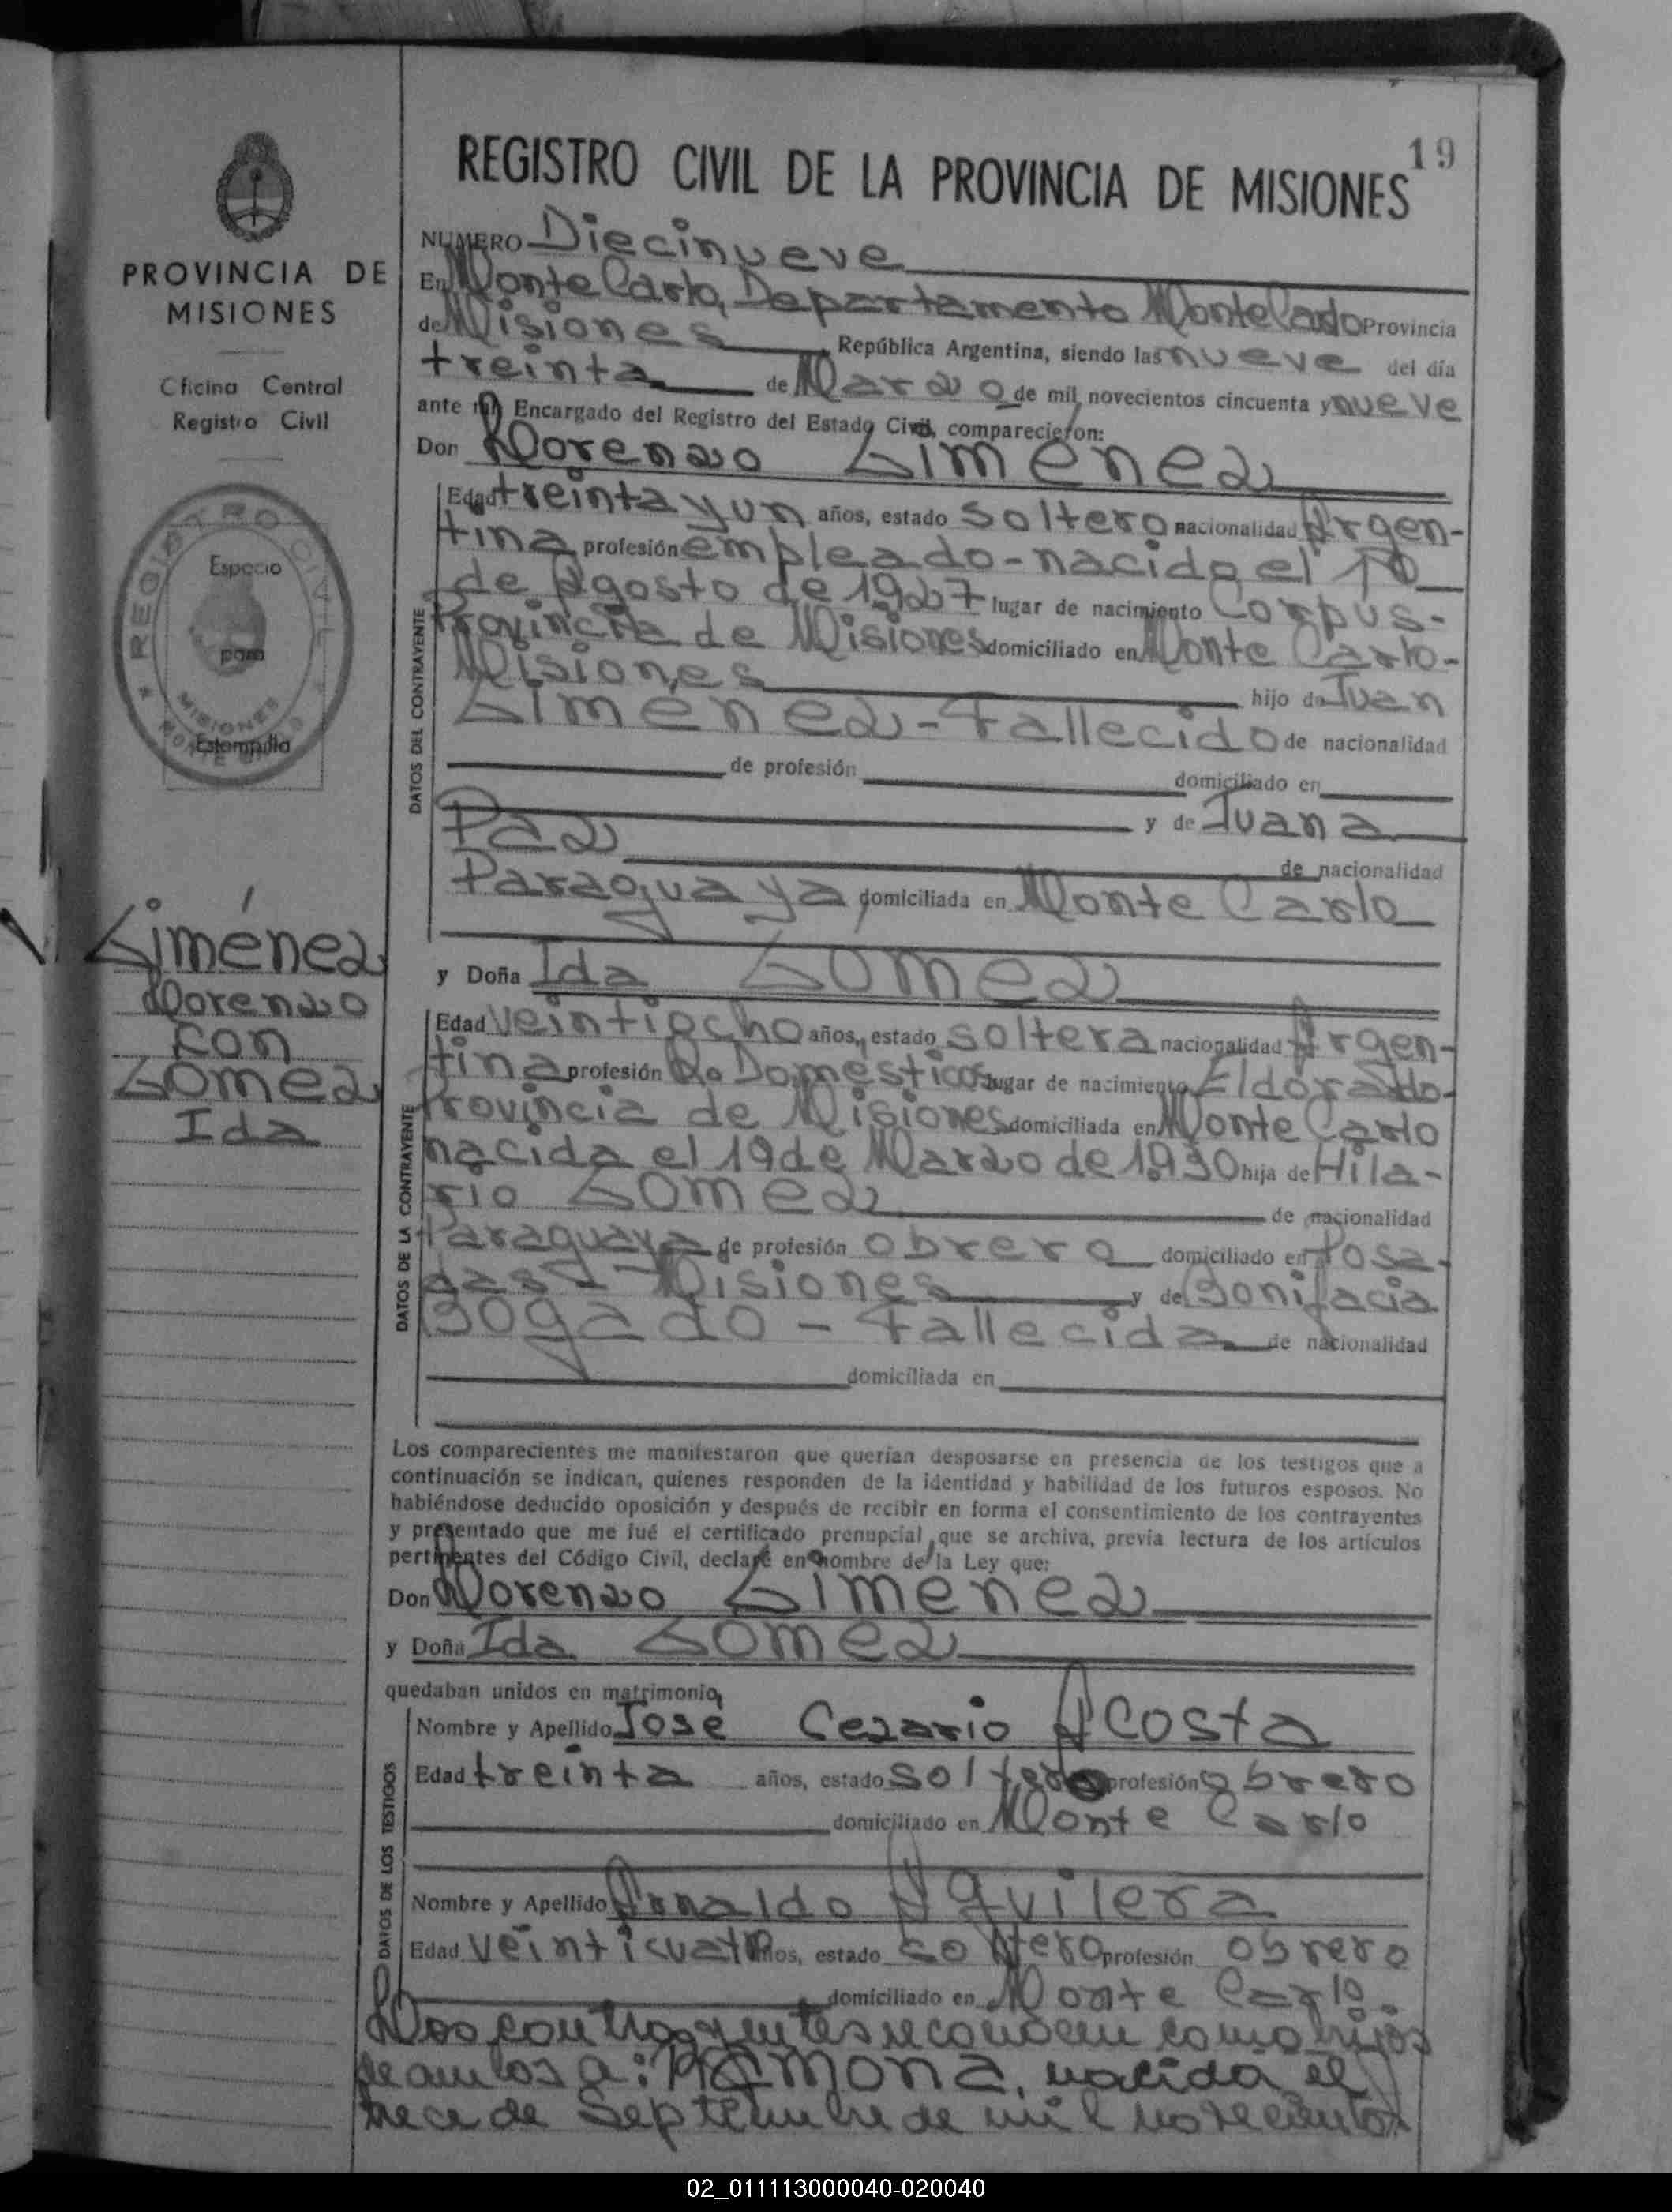 19
REGISTRO CIVIL DE LA PROVINCIA DE MISIONES
PROVINCIA DE
MISIONES
Oficina Central
Registro Civil
REGISTRO CIVIL
MISIONES
Espacio
para
Estampilla
Giménez
Lorenzo
con
Gomez
Ida
NUMERO Diecinueve
En Monte Carlo, Departamento Monte Carlo Provincia
de Misiones República Argentina, siendo las nueve del día
treinta de Marzo de mil novecientos cincuenta y nueve
ante mi Encargado del Registro del Estado Civil, comparecieron:
Don Lorenzo Giménez
DATOS DEL CONTRAYENTE
Edad treinta y un años, estado soltero nacionalidad Argen-
tina profesión empleado - nacido el 10
de Agosto de 1927 lugar de nacimiento Corpus-
Provincia de Misiones domiciliado en Monte Carlo-
Misiones hijo de Juan
Giménez - Fallecido de nacionalidad
de profesión domiciliado en
y de Juana
Paz de nacionalidad
Paraguaya domiciliada en Monte Carlo
y Doña Ida Gomez
DATOS DE LA CONTRAYENTE
Edad Veintiocho años, estado soltera nacionalidad Argen-
tina profesión Q. Domésticos lugar de nacimiento Eldorado-
Provincia de Misiones domiciliada en Monte Carlo
nacida el 19 de Marzo de 1930 hija de Hila-
rio Gomez de nacionalidad
Paraguaya de profesión obrero domiciliado en Posa-
das - Misiones y de Bonifacia
Bogado - Fallecida de nacionalidad
domiciliada en
Los comparecientes me manifestaron que querían desposarse en presencia de los testigos que a
continuación se indican, quienes responden de la identidad y habilidad de los futuros esposos. No
habiéndose deducido oposición y después de recibir en forma el consentimiento de los contrayentes
y presentado que me fué el certificado prenupcial que se archiva, previa lectura de los artículos
pertinentes del Código Civil, declaré en nombre de la Ley que:
Don Lorenzo Gimenez
y Doña Ida Gomez
quedaban unidos en matrimonio,
DATOS DE LOS TESTIGOS
Nombre y Apellido José Cezario Acosta
Edad treinta años, estado soltero profesión obrero
domiciliado en Monte Carlo
Nombre y Apellido Arnaldo Aguilera
Edad veinticuatro años, estado soltero profesión obrero
domiciliado en Monte Carlo.
Los contrayentes reconocen como hijos
de ambos a: RAMONA, nacida el
trece de Septiembre de mil novecientos
02_011113000040-020040